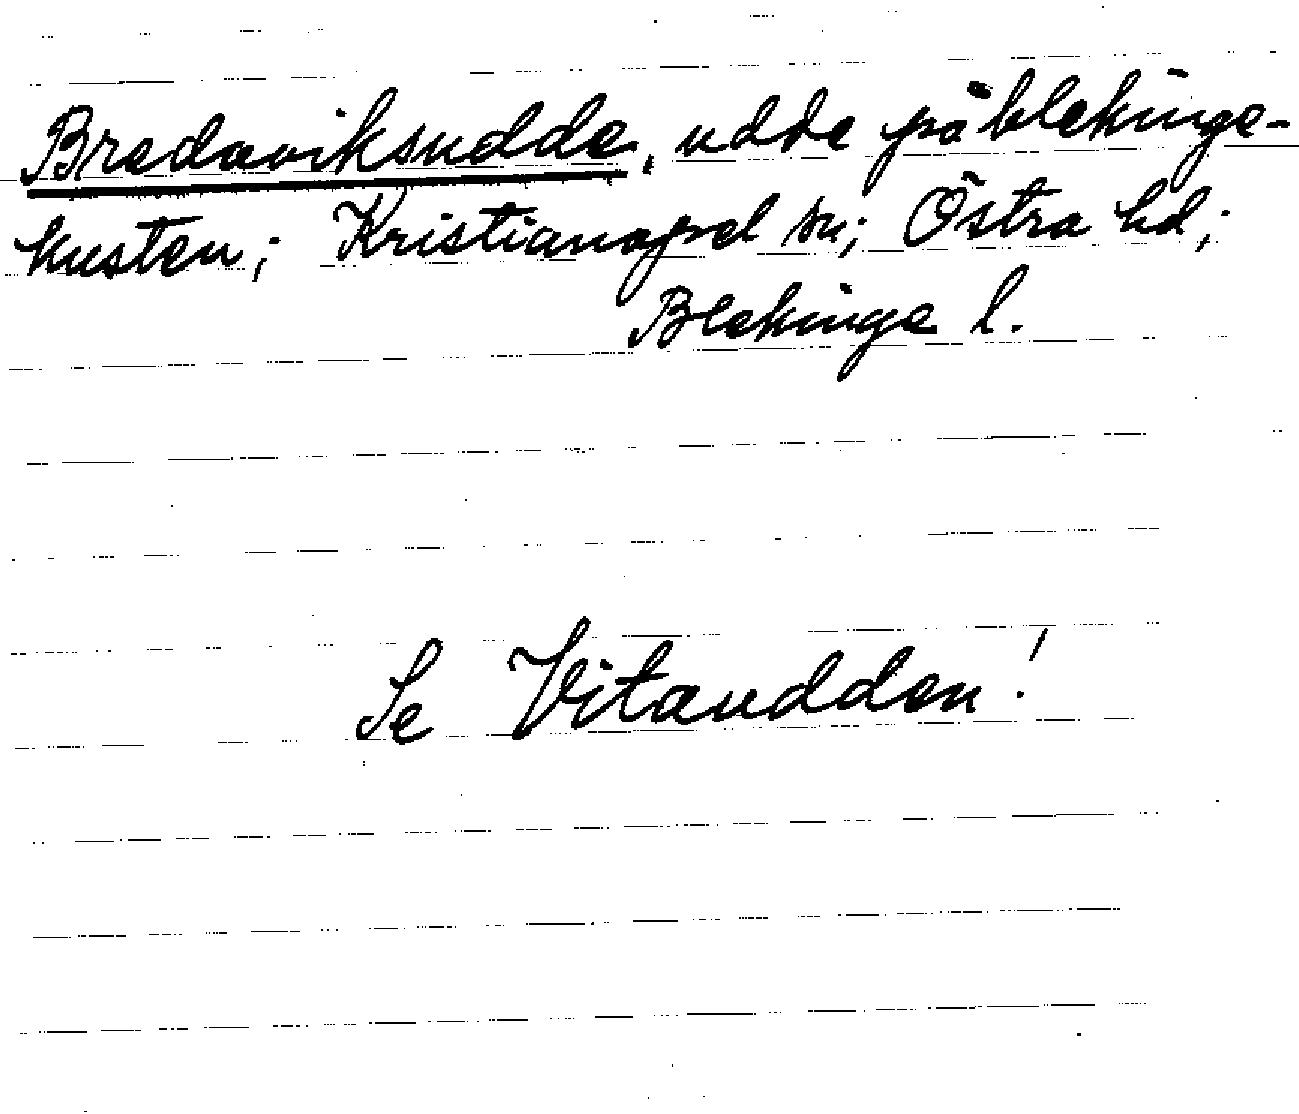 Bredaviksudde, udde på blekinge-
kusten; Kristianopel sn; Östra hd;
Blekinge l.
Se Vitaudden!